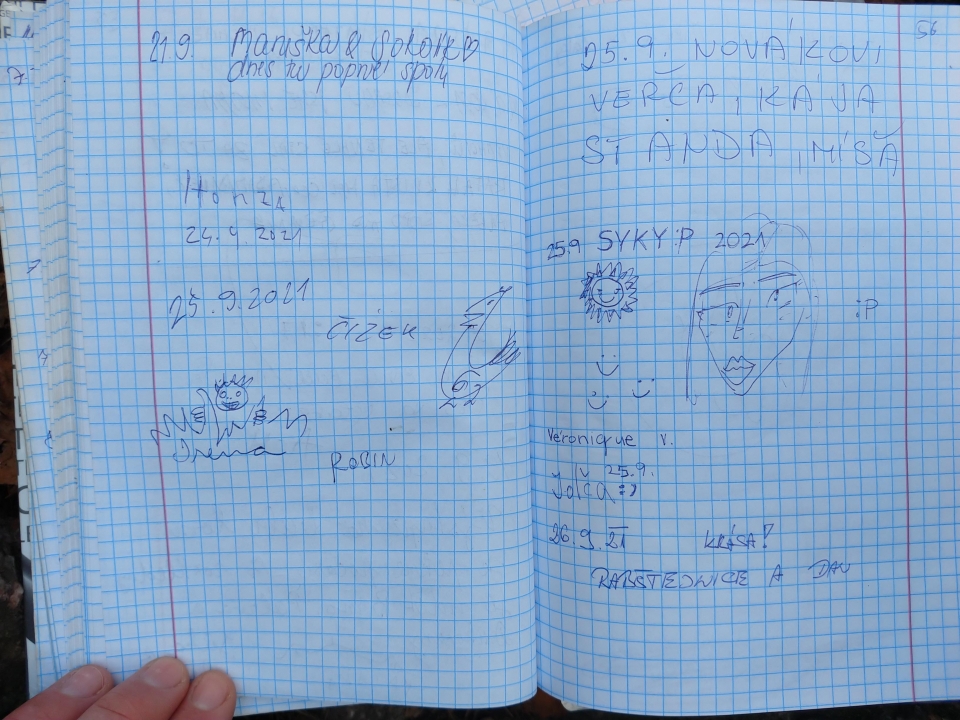 21.9. Maruška & Sokolík
dnes tu poprvé spolu
Honza
24.4.2021
25.9.2021
ČÍŽEK
Irena
ROBIN
56
25.9. NOVÁKOVI
VERČA, KÁJA
STÁNDA, MÍŠA
25.9 SYKY:P 2021
:P
Veronique V.
25.9.
26.9.21 KRÁSA!
A